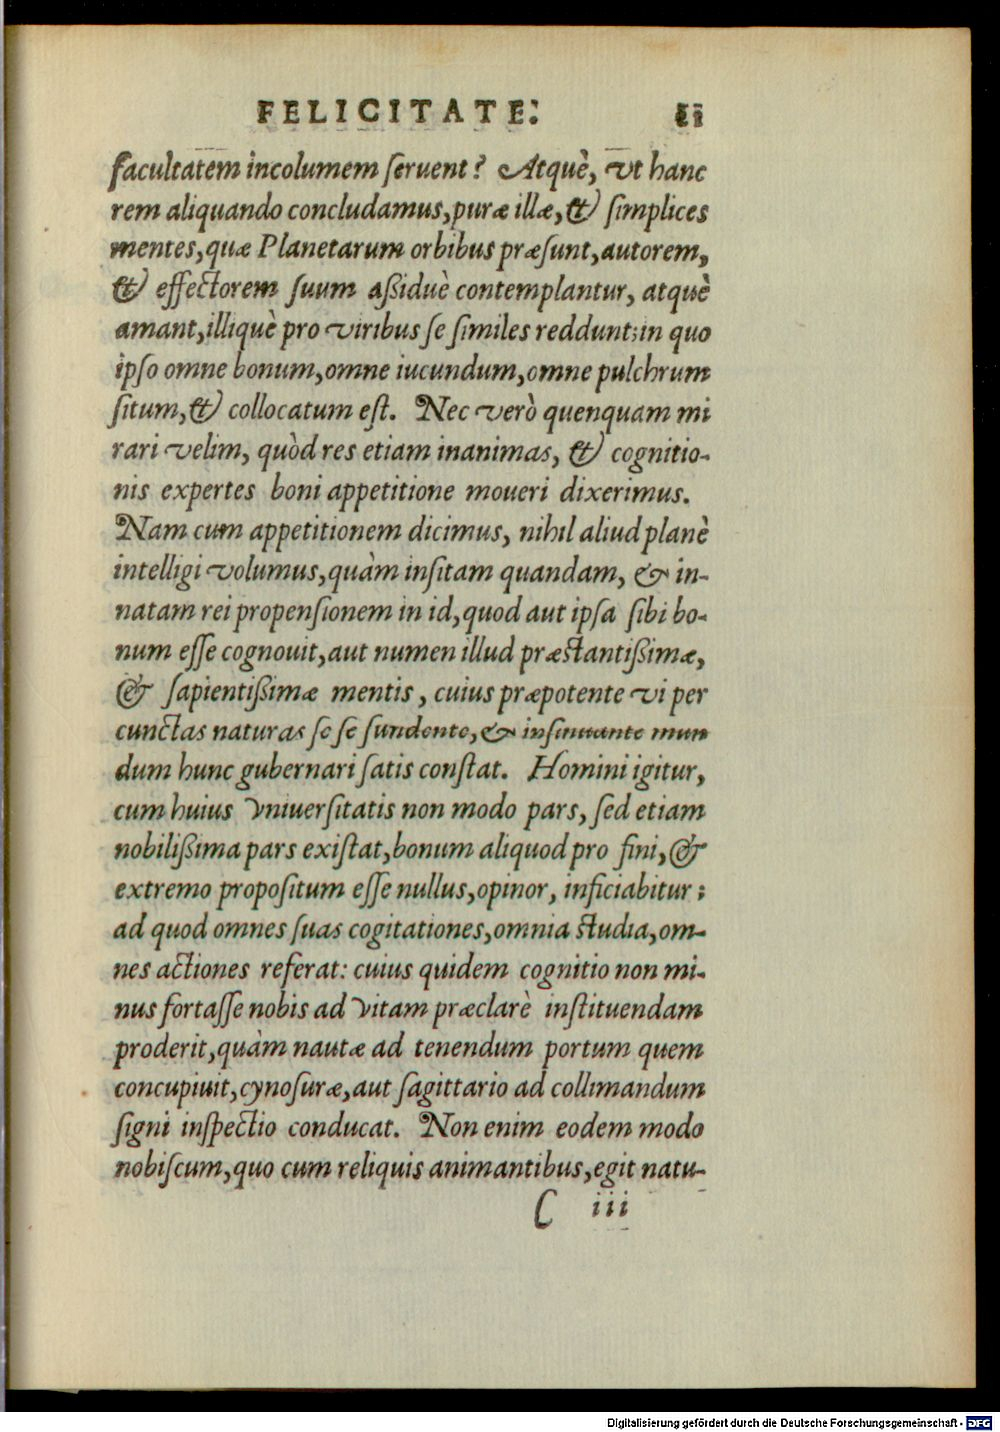 FELICITATE.
facultatem incolumem ſeruent? Atquè, vt hanc
rem aliquando concludamus, puræ illæ, & ſimplices
mentes, quæ Planetarum orbibus præſunt, autorem,
& effectorem ſuum aßiduè contemplantur, atquè
amant, illiquè pro viribus ſe ſimiles reddunt: in quo
ipſo omne bonum, omne iucundum, omne pulchrum
ſitum, & collocatum eſt. Nec verò quenquam mi
rari velim, quòd res etiam inanimas, & cognitio-
nis expertes boni appetitione moueri dixerimus.
Nam cum appetitionem dicimus, nihil aliud planè
intelligi volumus, quàm inſitam quandam, & in-
natam rei propenſionem in id, quod aut ipſa ſibi bo-
num eſſe cognouit, aut numen illud præſtantißimæ,
& ſapientißimæ mentis, cuius præpotente vi per
cunctas naturas ſe ſe fundente, & inſinuante mun
dum hunc gubernari ſatis conſtat. Homini igitur,
cum huius vniuerſitatis non modo pars, ſed etiam
nobilißima pars exiſtat, bonum aliquod pro fini, &
extremo propoſitum eſſe nullus, opinor, inficiabitur;
ad quod omnes ſuas cogitationes, omnia ſtudia, om-
nes actiones referat: cuius quidem cognitio non mi-
nus fortaſſe nobis ad vitam præclarè inſtituendam
proderit, quàm nautæ ad tenendum portum quem
concupiuit, cynoſuræ, aut ſagittario ad collimandum
ſigni inſpectio conducat. Non enim eodem modo
nobiſcum, quo cum reliquis animantibus, egit natu-
C iii
Digitalisierung gefördert durch die Deutsche Forschungsgemeinschaft - DFG